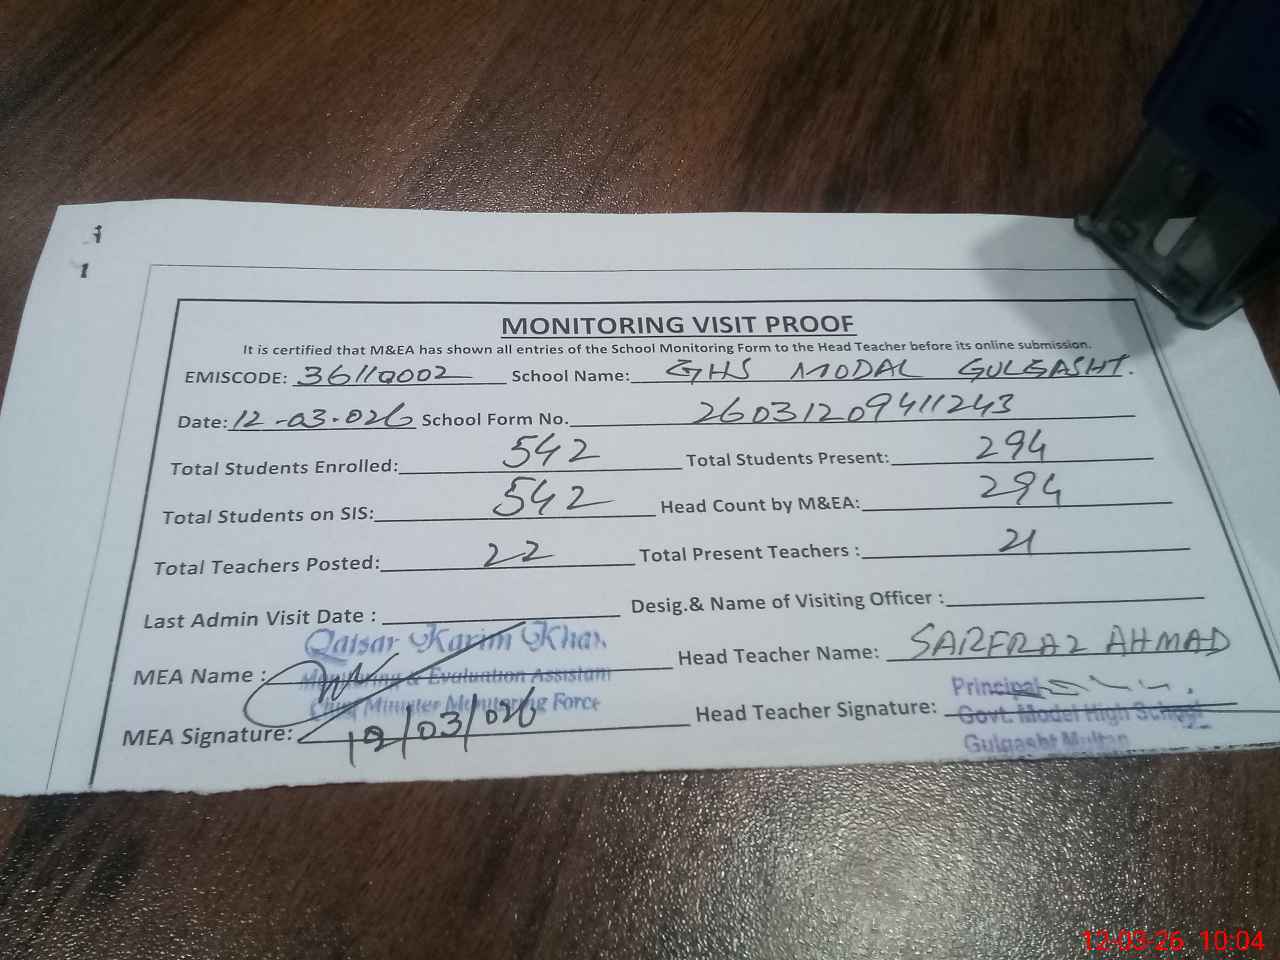 MONITORING VISIT PROOF
It is certified that M&EA has shown all entries of the School Monitoring Form to the Head Teacher before its online submission.
EMISCODE: 36110002 School Name: GHS MODAL GULGASHT.
Date: 12-03-026 School Form No. 26031209411243
Total Students Enrolled: 542 Total Students Present: 294
Total Students on SIS: 542 Head Count by M&EA: 294
Total Teachers Posted: 22 Total Present Teachers : 21
Last Admin Visit Date : Desig.& Name of Visiting Officer :
Qaisar Karim Khan
MEA Name : Monitoring & Evaluation Assistant Head Teacher Name: SARFRAZ AHMAD
Chief Minister Monitoring Force
MEA Signature: 12/03/026 Head Teacher Signature:
Principal
Govt. Model High School
Gulgasht Multan
12-03-26 10:04